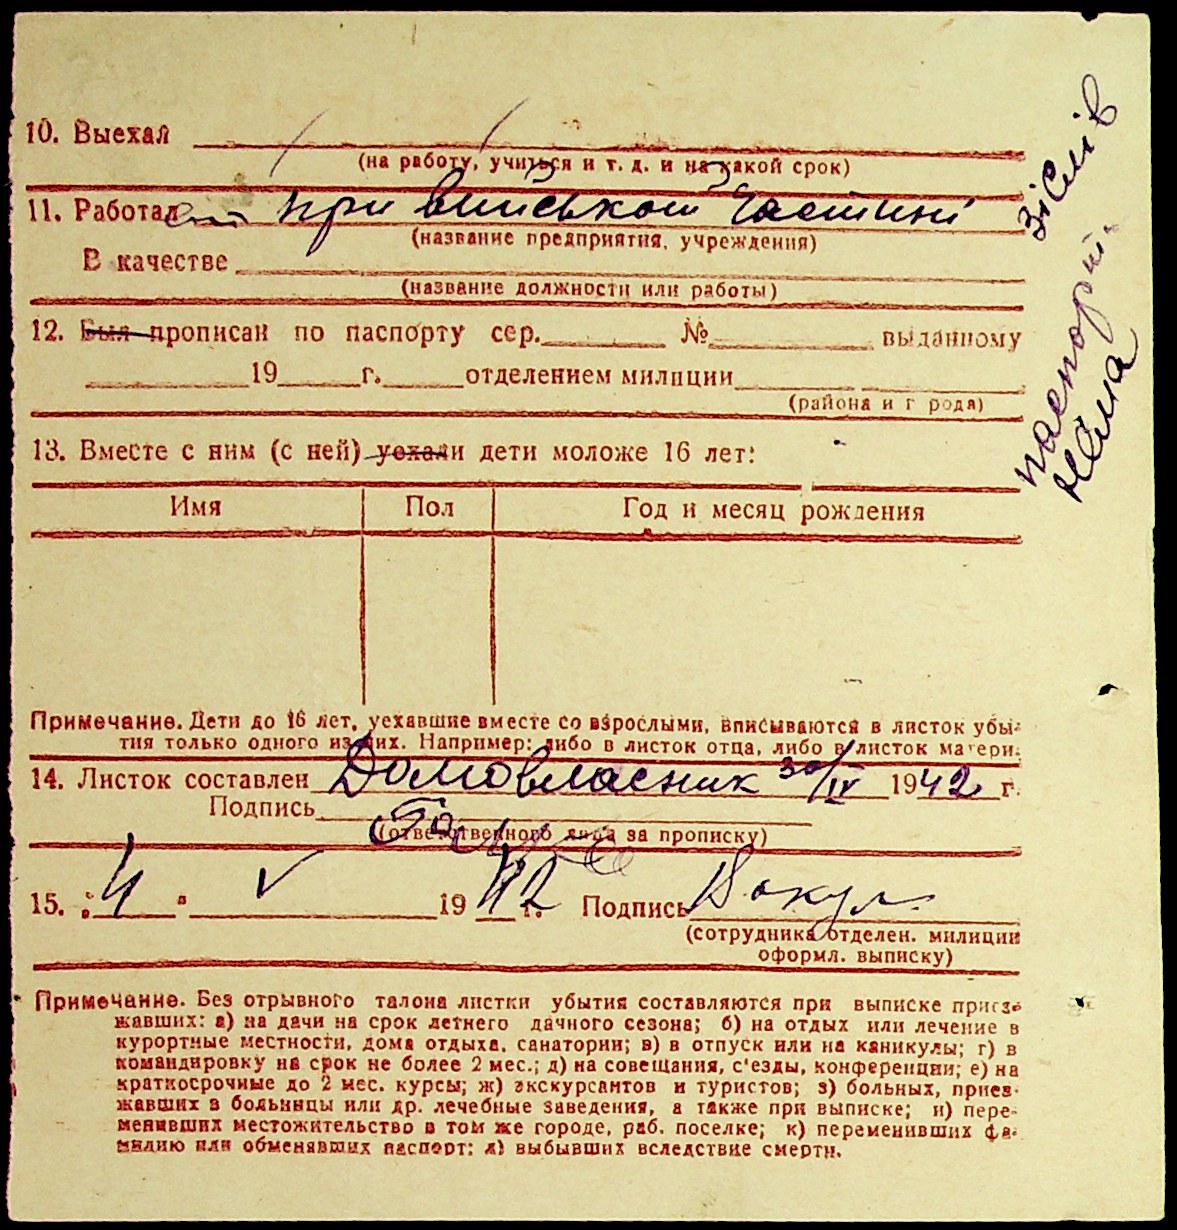 10. Выехал
(на работу, учиться и т. д. и на какой срок)
11. Работал при військой частині
(название предприятия, учреждения)
В качестве
(название должности или работы)
12. Был прописан по паспорту сер. № выданному
19 г. отделением милиции
(района и г рода)
13. Вместе с ним (с ней) уехали дети моложе 16 лет:
Имя Пол Год и месяц рождения
Примечание. Дети до 16 лет, уехавшие вместе со взрослыми, вписываются в листок убы-
тия только одного из них. Например: либо в листок отца, либо в листок матери.
14. Листок составлен Домовласник 30/IV 1942 г.
Подпись
(ответственного лица за прописку)
15. "4" V 1942 г. Подпись
(сотрудника отделен. милиции
оформл. выписку)
Примечание. Без отрывного талона листки убытия составляются при выписке приез-
жавших: а) на дачи на срок летнего дачного сезона; б) на отдых или лечение в
курортные местности, дома отдыха, санатории; в) в отпуск или на каникулы; г) в
командировку на срок не более 2 мес.; д) на совещания, с'езды, конференции; е) на
краткосрочные до 2 мес. курсы; ж) экскурсантов и туристов; з) больных, приез-
жавших в больницы или др. лечебные заведения, а также при выписке; и) пере-
менивших местожительство в том же городе, раб. поселке; к) переменивших фа-
милию или обменявших паспорт; л) выбывших вследствие смерти.
зіслів
паспорт
нема